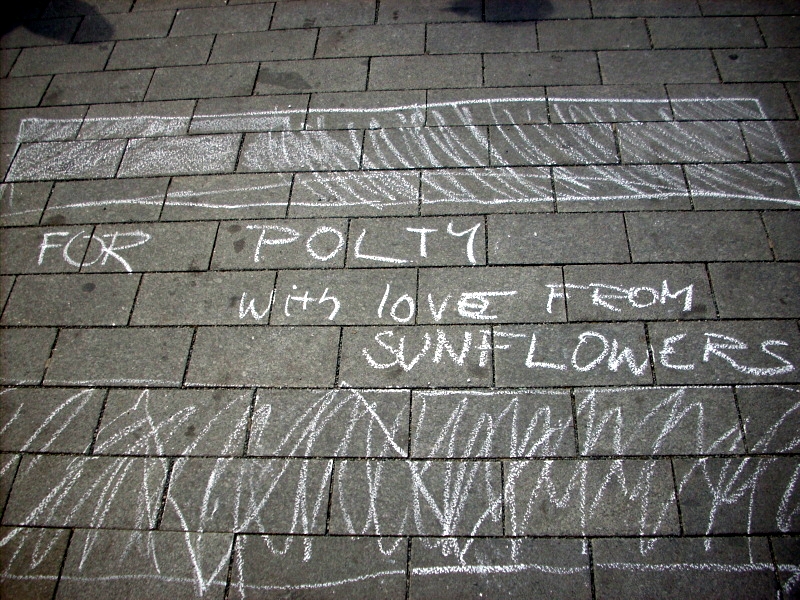 FOR POLTY
with love FROM
SUNFLOWERS